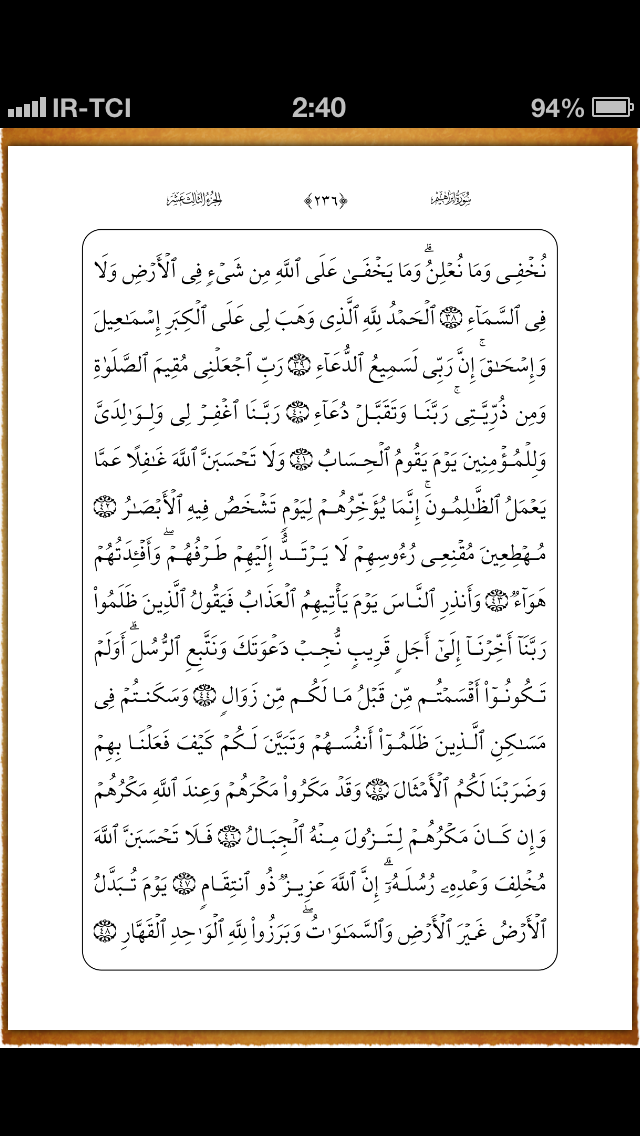 IR-TCI 2:40 94%
سُورَةُ إِبْرَاهِيم ﴿٢٣٦﴾ الجُزْءُ الثَّالِثَ عَشَرَ
نُخْفِى وَمَا نُعْلِنُ ۗ وَمَا يَخْفَىٰ عَلَى ٱللَّهِ مِن شَىْءٍ فِى ٱلْأَرْضِ وَلَا
فِى ٱلسَّمَآءِ ٣٨ ٱلْحَمْدُ لِلَّهِ ٱلَّذِى وَهَبَ لِى عَلَى ٱلْكِبَرِ إِسْمَـٰعِيلَ
وَإِسْحَـٰقَ ۚ إِنَّ رَبِّى لَسَمِيعُ ٱلدُّعَآءِ ٣٩ رَبِّ ٱجْعَلْنِى مُقِيمَ ٱلصَّلَوٰةِ
وَمِن ذُرِّيَّتِى ۚ رَبَّنَا وَتَقَبَّلْ دُعَآءِ ٤٠ رَبَّنَا ٱغْفِرْ لِى وَلِوَٰلِدَىَّ
وَلِلْمُؤْمِنِينَ يَوْمَ يَقُومُ ٱلْحِسَابُ ٤١ وَلَا تَحْسَبَنَّ ٱللَّهَ غَـٰفِلًا عَمَّا
يَعْمَلُ ٱلظَّـٰلِمُونَ ۚ إِنَّمَا يُؤَخِّرُهُمْ لِيَوْمٍ تَشْخَصُ فِيهِ ٱلْأَبْصَـٰرُ ٤٢
مُهْطِعِينَ مُقْنِعِى رُءُوسِهِمْ لَا يَرْتَدُّ إِلَيْهِمْ طَرْفُهُمْ ۖ وَأَفْـِٔدَتُهُمْ
هَوَآءٌ ٤٣ وَأَنذِرِ ٱلنَّاسَ يَوْمَ يَأْتِيهِمُ ٱلْعَذَابُ فَيَقُولُ ٱلَّذِينَ ظَلَمُوا۟
رَبَّنَآ أَخِّرْنَآ إِلَىٰٓ أَجَلٍ قَرِيبٍ نُّجِبْ دَعْوَتَكَ وَنَتَّبِعِ ٱلرُّسُلَ ۗ أَوَلَمْ
تَكُونُوٓا۟ أَقْسَمْتُم مِّن قَبْلُ مَا لَكُم مِّن زَوَالٍ ٤٤ وَسَكَنتُمْ فِى
مَسَـٰكِنِ ٱلَّذِينَ ظَلَمُوٓا۟ أَنفُسَهُمْ وَتَبَيَّنَ لَكُمْ كَيْفَ فَعَلْنَا بِهِمْ
وَضَرَبْنَا لَكُمُ ٱلْأَمْثَالَ ٤٥ وَقَدْ مَكَرُوا۟ مَكْرَهُمْ وَعِندَ ٱللَّهِ مَكْرُهُمْ
وَإِن كَانَ مَكْرُهُمْ لِتَزُولَ مِنْهُ ٱلْجِبَالُ ٤٦ فَلَا تَحْسَبَنَّ ٱللَّهَ
مُخْلِفَ وَعْدِهِۦ رُسُلَهُۥٓ ۗ إِنَّ ٱللَّهَ عَزِيزٌ ذُو ٱنتِقَامٍ ٤٧ يَوْمَ تُبَدَّلُ
ٱلْأَرْضُ غَيْرَ ٱلْأَرْضِ وَٱلسَّمَـٰوَٰتُ ۖ وَبَرَزُوا۟ لِلَّهِ ٱلْوَٰحِدِ ٱلْقَهَّارِ ٤٨